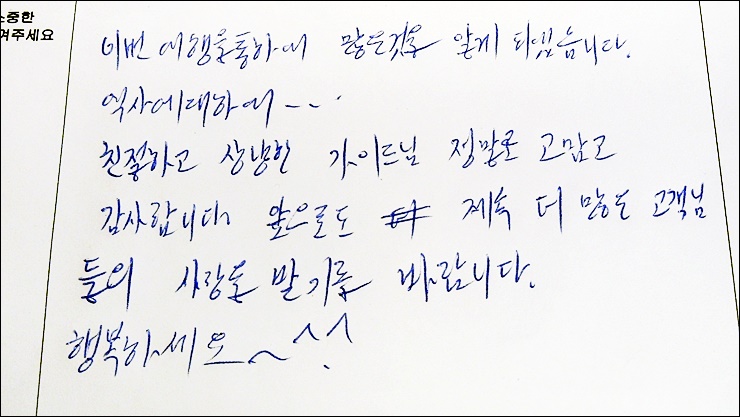 소중한
겨주세요
이번 여행을통하여 많은것을 알게 되었습니다.
역사에대하여~~.
친절하고 상냥한 가이드님 정말로 고맙고
감사합니다. 앞으로도 계속 더 많은 고객님
들의 사랑을 받기를 바랍니다.
행복하세요~^^